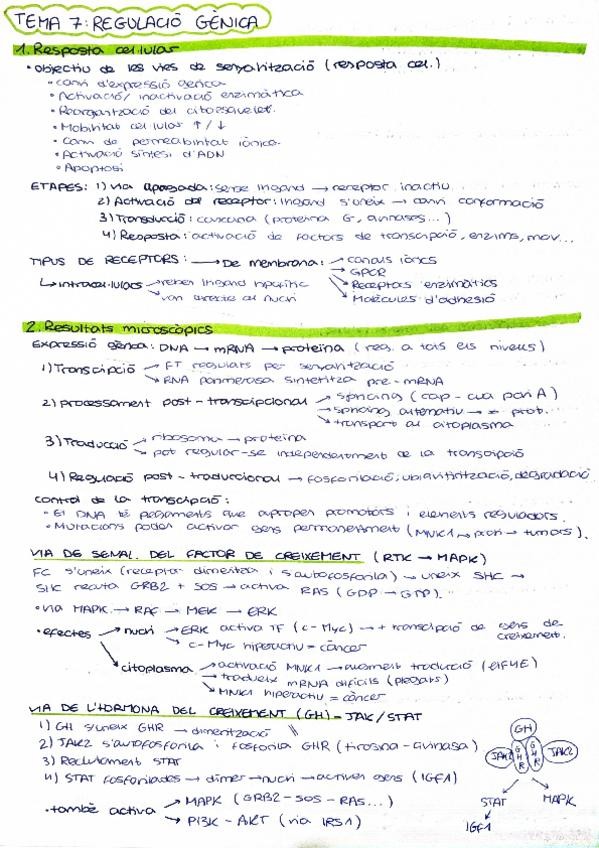 TEMA 7: REGULACIÓ GÈNICA
1. Resposta cel·lular
• Objectiu de les vies de senyalització (resposta cel.)
• Canvi d'expressió gènica
• Activació/inactivació enzimàtica
• Reorganització del citoesquelet.
• Mobilitat cel·lular ↑/↓
• Canvi de permeabilitat iònica.
• Activació síntesi d'ADN
• Apoptosi
ETAPES: 1) Via apagada: sense lligand → receptor inactiu
2) Activació del receptor: lligand s'uneix → canvi conformació
3) Transducció: cascada (proteïna G, cinases...)
4) Resposta: activació de factors de transcripció, enzims, mov...
TIPUS DE RECEPTORS: → De membrana: → canals iònics
→ GPCR
↳ Intracel·lulars → reben lligand lipofílic → Receptors enzimàtics
→ van directe al nucli → Molècules d'adhesió
2. Resultats microscòpics
Expressió gènica: DNA → mRNA → proteïna (reg. a tots els nivells)
1) Transcripció → FT regulats per senyalització
→ RNA polimerasa sintetitza pre-mRNA
2) Processament post-transcripcional → splicing (cap-cua poli A)
→ splicing alternatiu → ≠ prot.
→ transport al citoplasma
3) Traducció → ribosoma → proteïna
→ pot regular-se independentment de la transcripció
4) Regulació post-traduccional → fosforilació, ubiquitinització, degradació
Control de la transcripció:
• El DNA té plegaments que apropen promotors i elements reguladors.
• Mutacions poden activar gens permanentment (MNK1 → prolif → tumors).
VIA DE SENAL. DEL FACTOR DE CREIXEMENT (RTK → MAPK)
FC s'uneix (receptor dimeritza i s'autofosforila) → uneix SHC →
SHC recluta GRB2 + SOS → activa RAS (GDP → GTP).
• Via MAPK → RAF → MEK → ERK
• efectes → nucli → ERK activa TF (c-Myc) → + transcripció de gens de creixement.
→ c-Myc hiperactiu = càncer
→ citoplasma → activació MNK1 → augment traducció (eIF4E)
→ tradueix mRNA difícils (plegats)
→ MNK1 hiperactiu = càncer
VIA DE L'HORMONA DEL CREIXEMENT (GH) - JAK/STAT
1) GH s'uneix GHR → dimerització
2) JAK2 s'autofosforila i fosforila GHR (tirosina-quinasa)
3) Reclutament STAT
4) STAT fosforilades → dímer → nucli → activen gens (IGF1)
• també activa → MAPK (GRB2-SOS-RAS...)
→ PI3K-AKT (via IRS1)
GH
JAK2 GHR GHR JAK2
STAT MAPK
IGF1